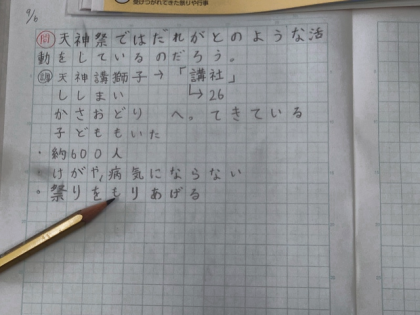 受けつがれてきた祭りや行事
9/6
問 天神祭ではだれがどのような活
動をしているのだろう。
調 天神講獅子→「講社」
ししまい ↳26
かさおどり へ。てきている
子どももいた
・約600人
けがや、病気にならない
・祭りをもりあげる